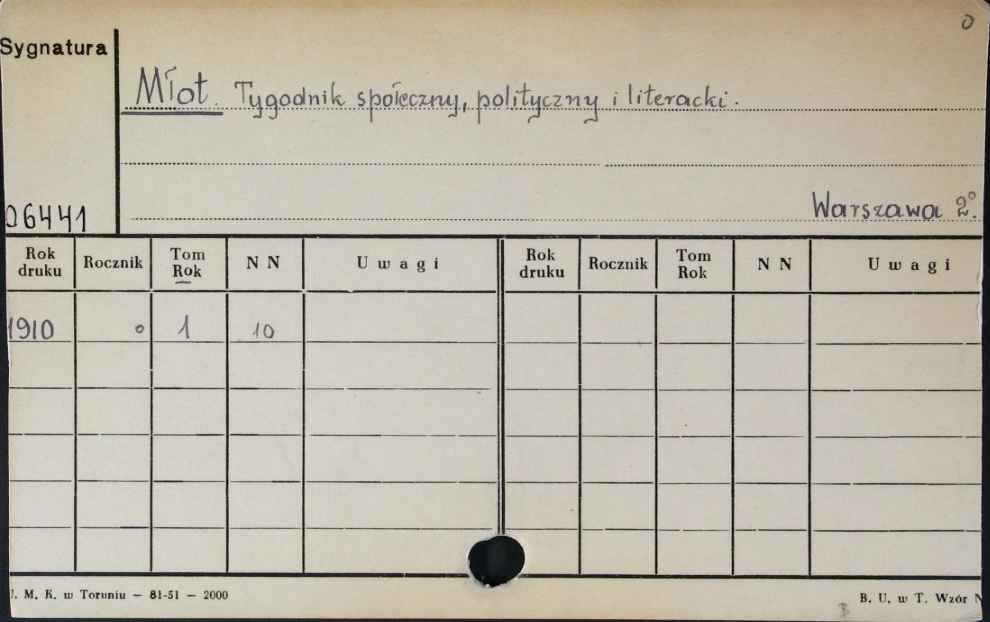 0
Sygnatura
Młot. Tygodnik społeczny, polityczny i literacki.
06441
Warszawa 2°.
Rok druku Rocznik Tom Rok N N Uwagi Rok druku Rocznik Tom Rok N N Uwagi
1910 o 1 10
J. M. K. w Toruniu — 81-51 — 2000
B. U. w T. Wzór N
B